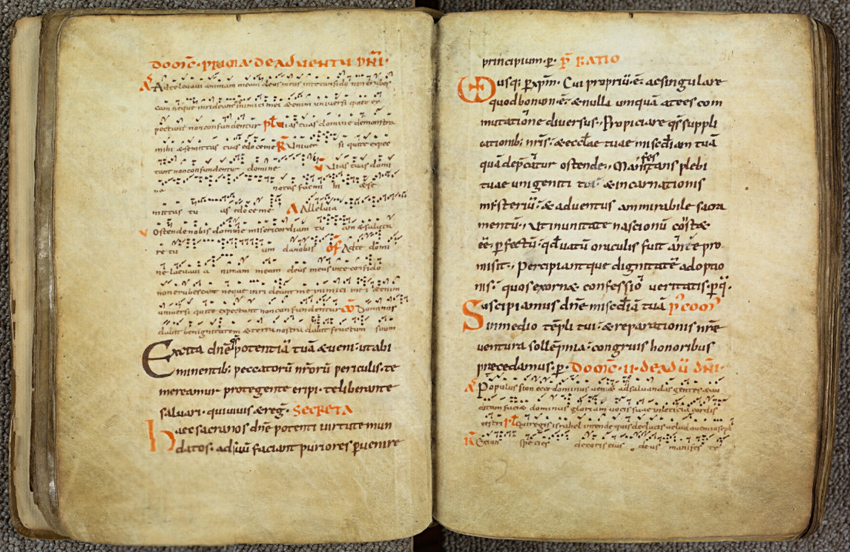 DOMIC · PRIMA · DE ADVENTU DNI ·
Ad te levavi animam meam deus meus in te confido non erubes
cam neque irrideant me inimici mei etenim universi qui te ex
pectant non confundentur ps Vias tuas domine demonstra
mihi & semitas tuas edoce me R Univer si qui te expec
tant non confundentur domine V Vias tuas domi
ne notas fac mi hi & se
mittas tu as edoce me A Alleluia
V Ostende nobis domine misericordiam tu am & saluta
re tu um da nobis of Ad te domi
ne levavi a nimam meam deus meus in te confido
non erubescam neque irrideant me inimici mei & enim
universi qui te expectant non confundentur co Dominus
dabit benignitatem & terra nostra dabit fructum suum
Excita dne qs potentiã tuã & veni · ut ab i
minentib; peccatorũ nrorũ periculis · te
mereamur protegente eripi · te liberante
salvari · qui vivis & reg · SECRETA
Haec sacra nos dne potenti virtute mun
datos · ad suũ faciant puriores pvenire
principium · p · PFRATIO
usq; p xpm · Cui propriũ · ē · ac singulare
quod bonum · ē · & nulla umquã a te es com
mutatione diversus · Propiciare qs suppli
cationib; nris · & eccłae tuae misediam tuã
quã depcatur ostende · Manifestans plebi
tuae unigeniti tui & incarnationis
misteriũ · & adventus ammirabile sacra
mentũ · Ut in unitate nationum
ee pfectũ · qd vatũ oraculis fuit ante pro
missũ · Percipiantque dignitatẽ adoptio
nis · quos exornat confessio veritatis · p q ·
Suscipiamus dne misediã tuã PꝰCOM
in medio tẽpli tui · & reparationis nrae
ventura sollemnia · congruis honoribus
precedamus · p · DOMIC · II · DE ADU DNI ·
Populus sion ecce dominus veniet ad salvandas gentes & au
ditam faciet dominus gloriam vocis suae in leticia cordis
vestri ps Qui regis israhel intende qui deducis velud ovem ioseph
R Ex sion species decoris eius deus manifes te